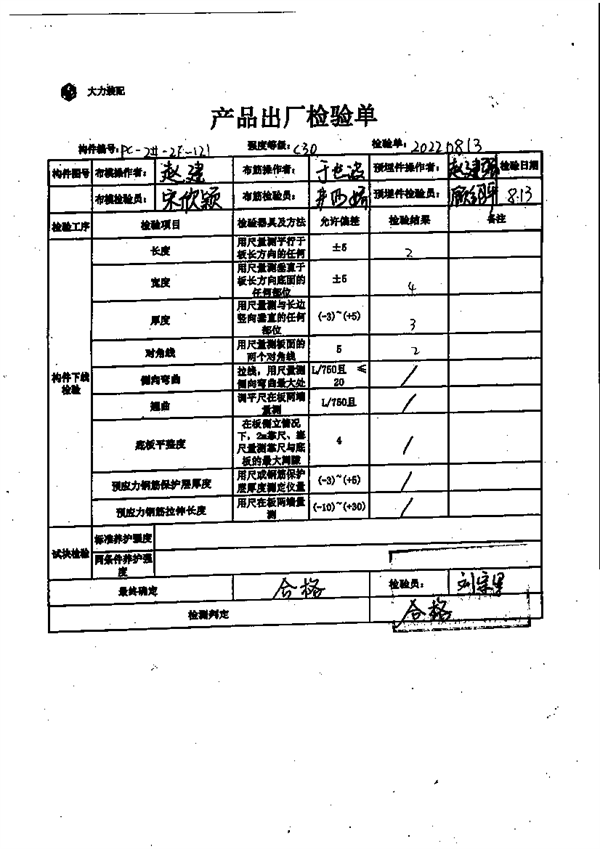 大力装配
产品出厂检验单
构件编号：PC-2#-2F-121 强度等级：C30 检验单：20220813
构件图号 布模操作者：赵建 布筋操作者： 预埋件操作者：赵建强 检验日期
布模检验员：宋欣颖 布筋检验员： 预埋件检验员： 8.13
检验工序 检验项目 检验器具及方法 允许偏差 检验结果 备注
构件下线检验
长度 用尺量测平行于板长方向的任何 ±5 2
宽度 用尺量测垂直于板长方向底面的任何部位 ±5 4
厚度 用尺量测与长边竖向垂直的任何部位 (-3)~(+5) 3
对角线 用尺量测板面的两个对角线 5 2
侧向弯曲 拉线，用尺量测侧向弯曲最大处 L/750且 ≤20 /
翘曲 调平尺在板两端量测 L/750且 /
底板平整度 在板侧立情况下，2m靠尺、塞尺量测靠尺与底板的最大间隙 4 /
预应力钢筋保护层厚度 用尺或钢筋保护层厚度测定仪量 (-3)~(+5) /
预应力钢筋拉伸长度 用尺在板两端量测 (-10)~(+30) /
试块检验 标准养护强度
同条件养护强度
最终确定 合格 检验员：
检测判定 合格